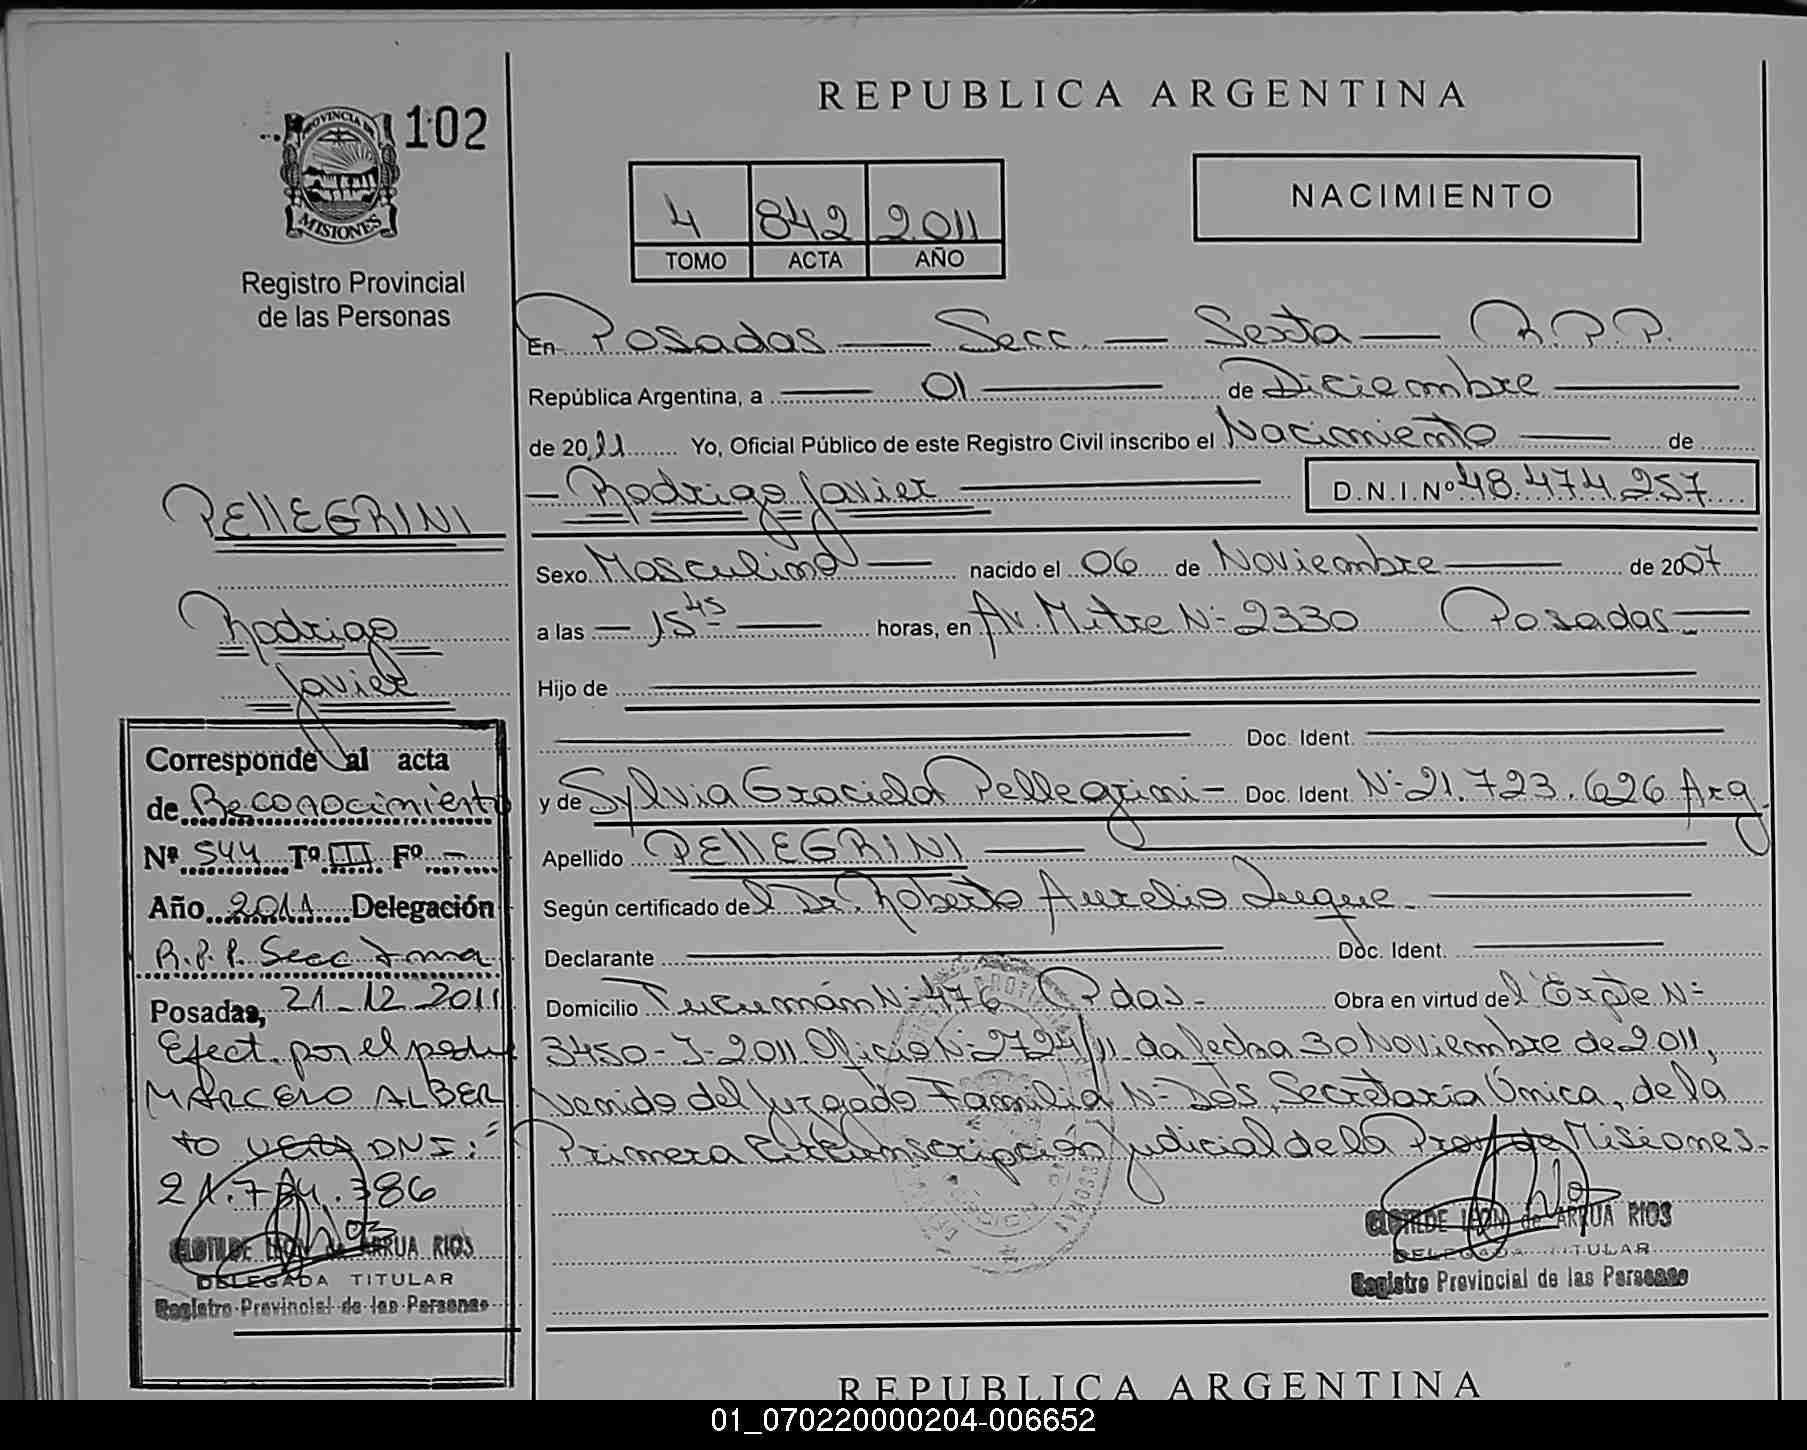 REPUBLICA ARGENTINA
PROVINCIA DE
MISIONES
102
Registro Provincial
de las Personas
4 842 2011
TOMO ACTA AÑO
NACIMIENTO
En Posadas — Secc. — Sexta — R.P.P.
República Argentina, a — 01 — de Diciembre —
de 2011 Yo, Oficial Público de este Registro Civil inscribo el Nacimiento — de
— Rodrigo Javier — D.N.I. Nº 48.474.257
Sexo Masculino — nacido el 06 de Noviembre — de 2007
a las — 15 45 — horas, en Av. Mitre Nº 2330 Posadas —
Hijo de —
— Doc. Ident. —
y de Sylvia Graciela Pellegrini — Doc. Ident. Nº 21.723.626 Arg.
Apellido PEllEGRINI —
Según certificado del Dr. Roberto Aurelio Luque —
Declarante — Doc. Ident. —
Domicilio Tucumán Nº 476 Pdas - Obra en virtud del Expte Nº
3450-J-2011 Oficio Nº 2724/11 da fecha 30 Noviembre de 2011,
venido del Juzgado Familia Nº Dos, Secretaría Única, de la
Primera Circunscripción Judicial de la Prov. de Misiones-
CLOTILDE LEON de ARRUA RIOS
DELEGADA TITULAR
Registro Provincial de las Personas
PEllEGRINI
Rodrigo
Javier
Corresponde al acta
de Reconocimiento
Nº 544 Tº III Fº —
Año 2011 Delegación
R.P.P. Secc
Posadas, 21-12-2011
Efect. por el padre
MARCELO ALBER
TO VERA DNI:
CLOTILDE LEON de ARRUA RIOS
DELEGADA TITULAR
Registro Provincial de las Personas
REPUBLICA ARGENTINA
01_070220000204-006652